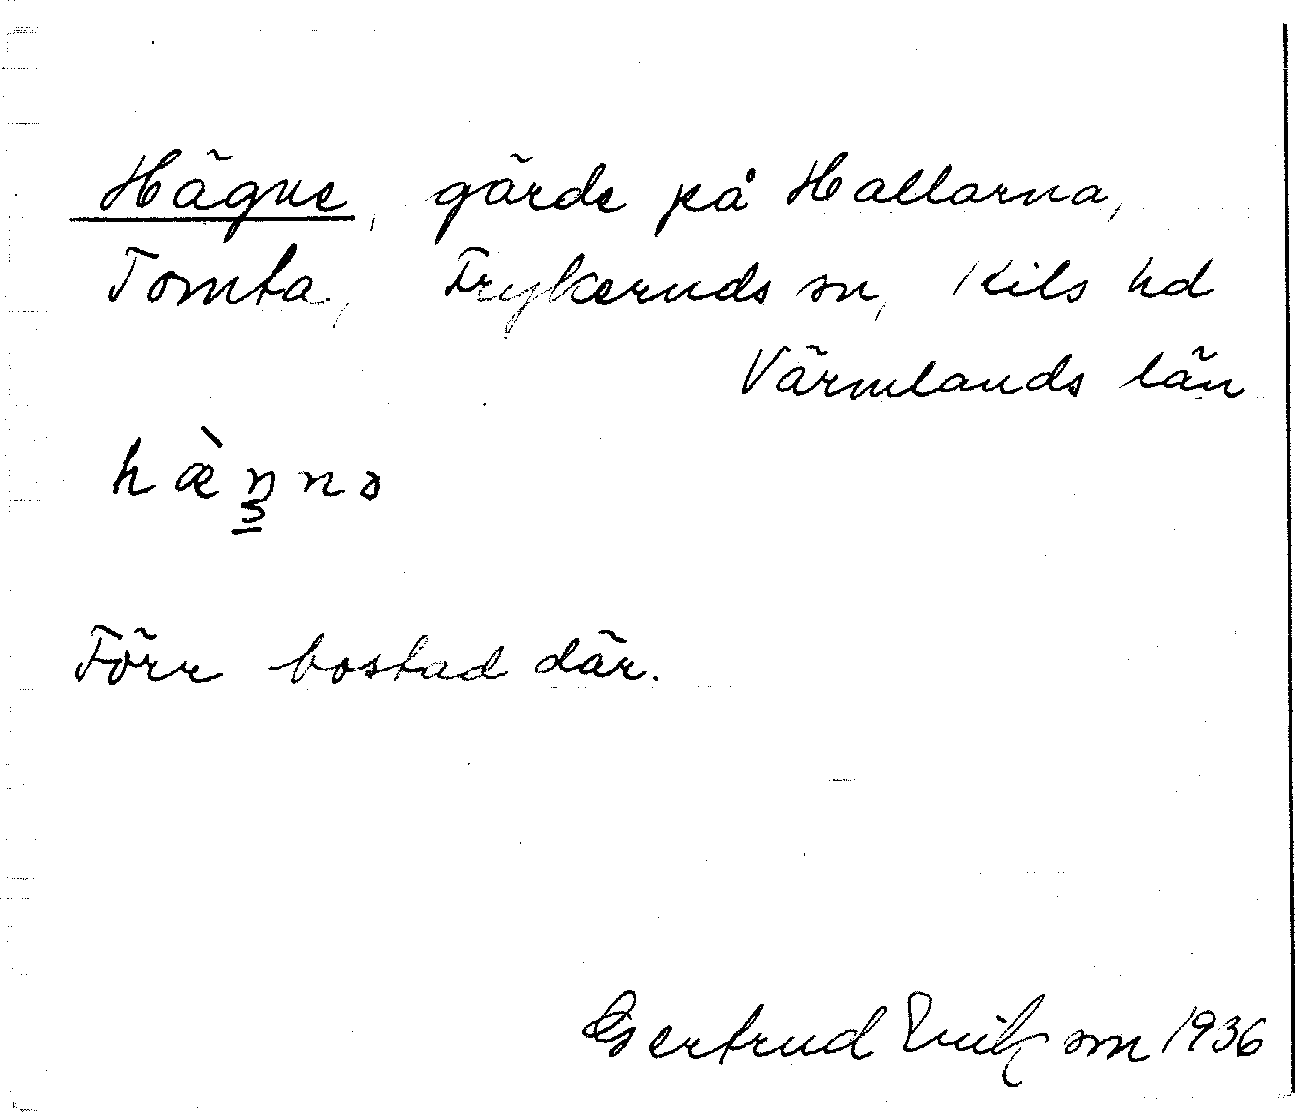 Hägne, gärde på Hallarna,
Tomta, Frykeruds sn, Kils hd
Värmlands län
hæ̀n̠nə
Förr bostad där.
Gertrud Erikson 1936